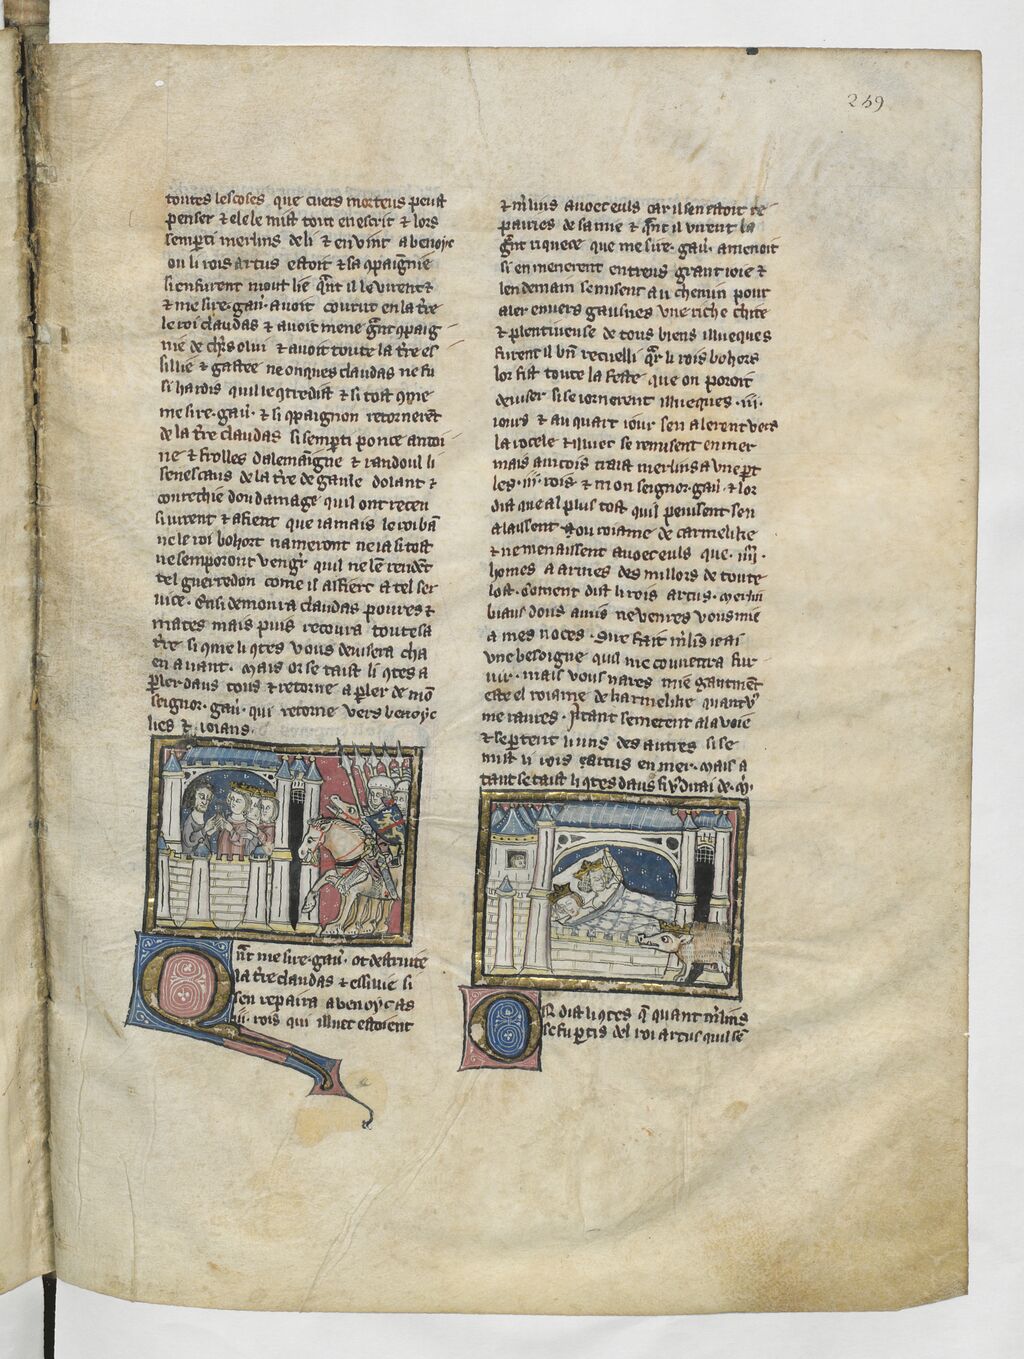 249
toutes les coses que cuers morteus peust
penser & ele le mist tout en escrit & lors
semp̄ti merlins de li & en vint a benoyc
ou li rois artus estoit & sa ꝯpaig̅nie
si en furent mout lie q̄nt il le virent &
& me sire · gau̅ · auoit courut en la t̄re
le roi claudas & auoit mene g̅nt ꝯpaig
nie de ch̅rs o lui & auoit toute la t̄re es
sillie & gastee ne onques claudas ne fu
si hardis quil le ꝯtredist & si tost ꝯme
me sire · gau̅ · & si ꝯpaignon retornerēt
de la t̄re claudas si semp̄ti ponce antoi
ne & frolles dalemaīgne & randoul li
senescaus de la t̄re de gaule dolant &
courechie dou damage quil ont receu
si iurent & afient que iamais le roi bā
ne le roi bohort nameront ne ia si tost
ne semporont vengr̄ quil ne lē rendēt
tel guerredon come il affiert a tel ser
uice · Ensi demoura claudas poures &
mates mais puis recoura toute sa
t̄re si ꝯme li ꝯtes vous deuisera cha
en auant · Mais or se taist li ꝯtes a
p̄ler daus tous & retorne a p̄ler de mō
seignor · gau̅ · qui retorne vers benoyc
lies & ioians
Q̄nt me sire · gau̅ · ot destruite
la t̄re claudas & essillie si
sen repaira a benoyc as
iii · rois qui illuec estoient
& m̄lins auoec euls car il sen estoit re
pairies de samie & q̄nt il virent la
g̅nt riquece que me sire · gau̅ · amenoit
si en menerent entreus grant ioie &
lendemain se misent au chemin pour
aler enuers gausnes vne riche chite
& plentiueuse de tous biens illueques
furent il bn̄ recuelli q̄r li rois bohors
lor fist toute la feste que on poroit
deuiser si seiornerent illueques · iii ·
iours & au quart iour sen alerent vers
la rocele & illuec se remisent en mer
mais ancois traist merlins a vne p̄t
les · iii · rois & mon seignor · gau̅ · & lor
dist que al plus tost quil peuissent sen
alaissent ou roiame de carmelike
& ne menaissent auoec euls que · iiii ·
homes a armes des millors de toute
lost · Coment dist li rois artus · Merlin
biaus dous amis ne venres vous mie
a mes noces · Que fait m̄lis ie ai
vne besoigne quil me couuenra fur
nir · mais vous nares mie gāmēt
este el roiame de karmelike quant vꝰ
me raures · Atant se metent a la voie
& se p̄tent li uns des autres si se
mist li rois artus en mer · Mais a
tant se taist li ꝯtes daus si vꝰ dirai de · m̅ ·
Or dist li ꝯtes q̄ quant m̄lins
se fu p̄tis del roi artus quil sē